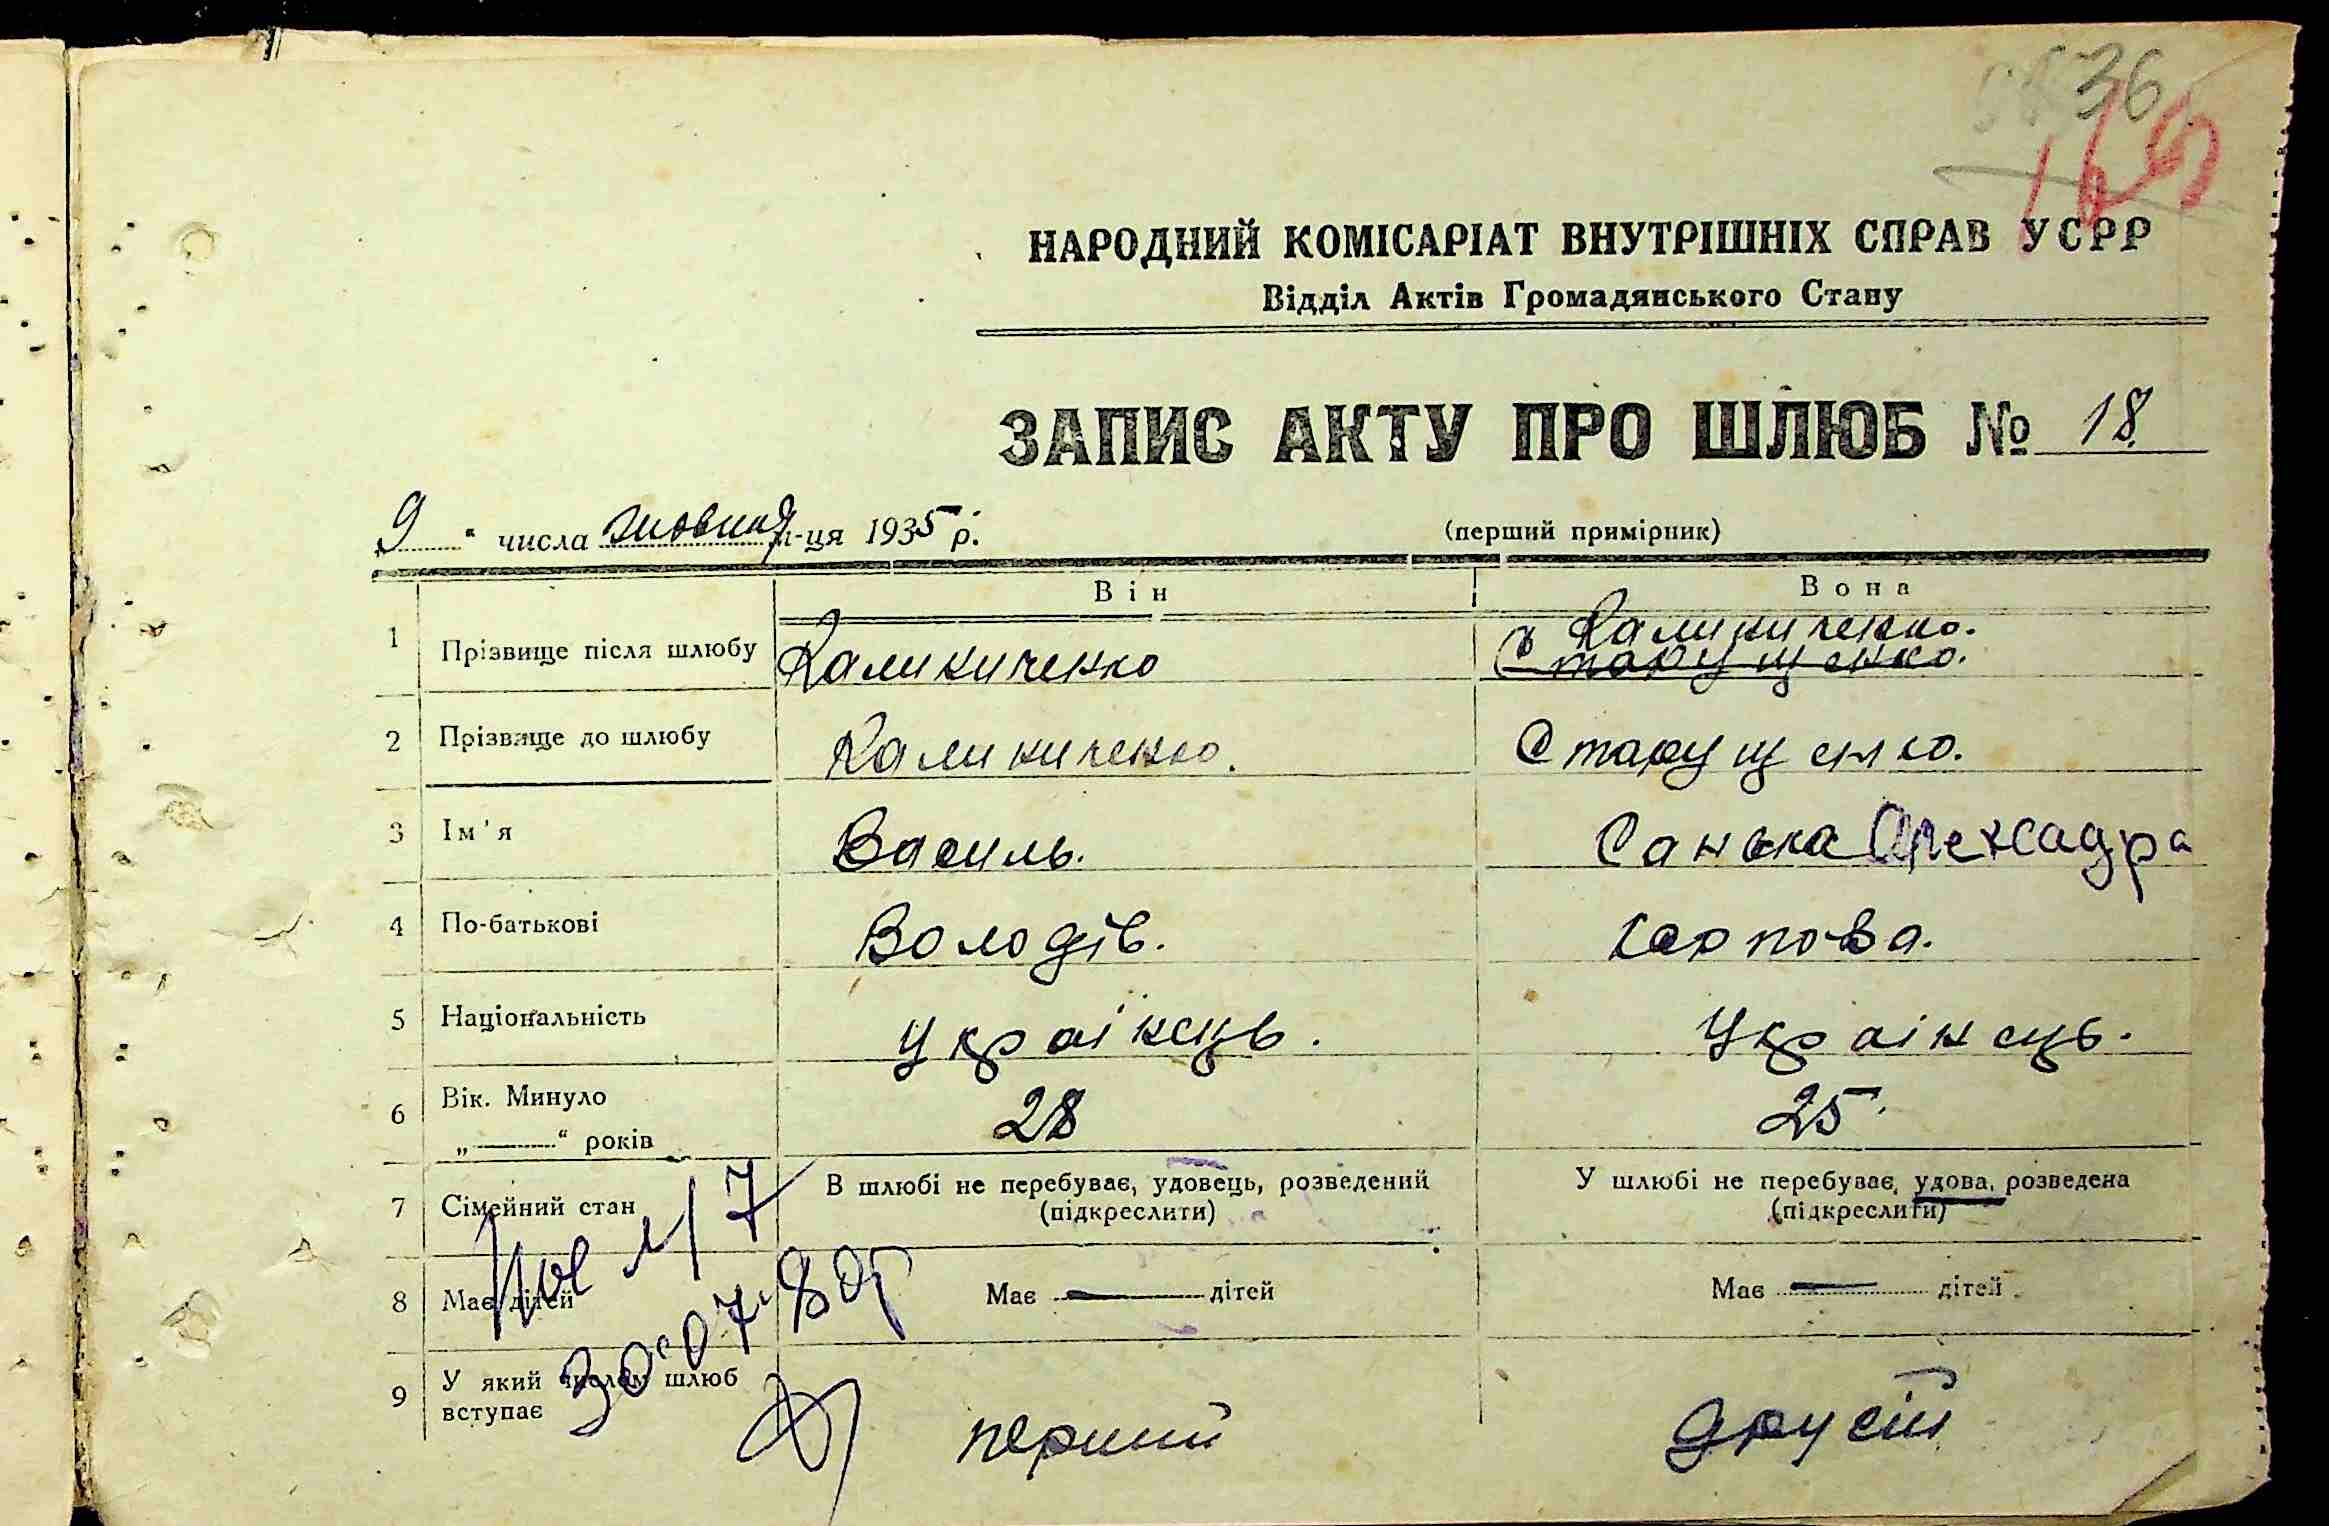 36
165
НАРОДНИЙ КОМІСАРІАТ ВНУТРІШНІХ СПРАВ УСРР
Відділ Актів Громадянського Стану
ЗАПИС АКТУ ПРО ШЛЮБ № 18.
„9“ числа жовтня м-ця 1935 р.
(перший примірник)
Він Вона
1 Прізвище після шлюбу Калиниченко Калиниченко.
Старущенко.
2 Прізвище до шлюбу Калиниченко. Старущенко.
3 Ім'я Василь. Санька Олександра
4 По-батькові Володів. Карпова.
5 Національність Українець. Українець.
6 Вік. Минуло „———“ років 28 25.
7 Сімейний стан В шлюбі не перебуває, удовець, розведений (підкреслити) У шлюбі не перебуває, удова, розведена (підкреслити)
8 Має дітей Має — дітей Має — дітей
30.07.80г
9 У який числом шлюб вступає перший другий